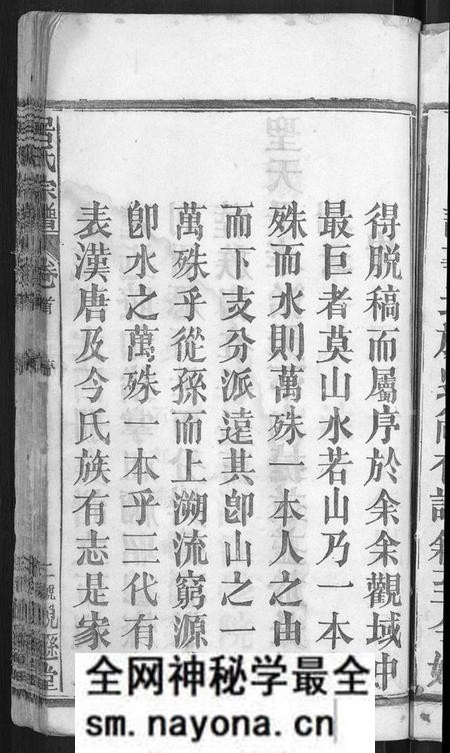 得脫稿而屬序於余余觀域中
最巨者莫山水若山乃一本
殊而水則萬殊一本人之由
而下支分派遠其卽山之一
萬殊乎從孫而上溯流窮源
卽水之萬殊一本乎三代有
表漢唐及今氏族有志是家
氏宗譜
卷首
序
二
堂
全网神秘学最全
sm.nayona.cn